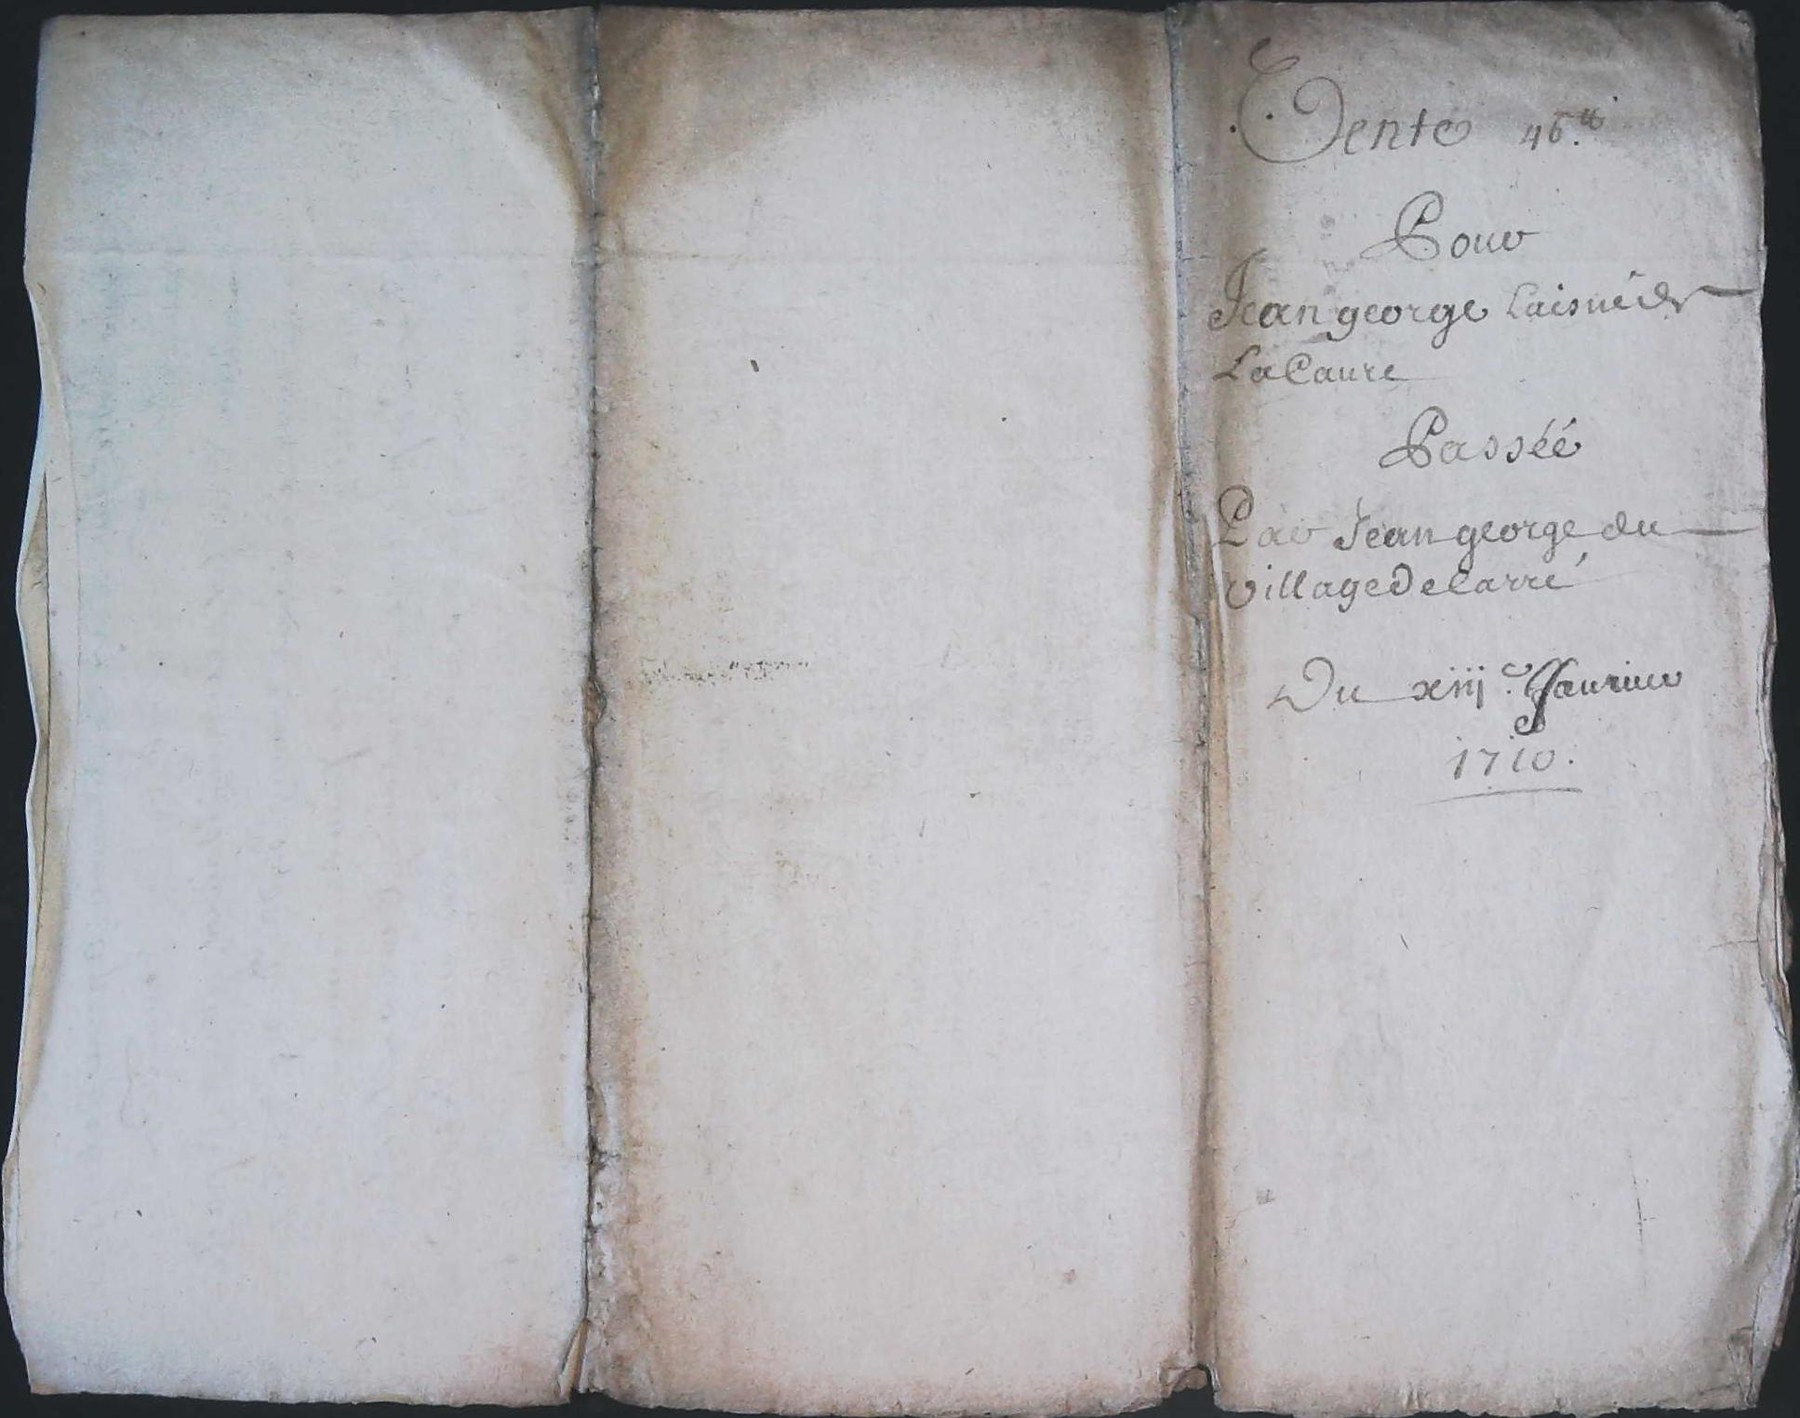 Vente 46.tt
Pour
Jean george Laisné de
La Caure
Passéé
Par Jean george du
village de Carré
Du xiij.e Januier
1710.